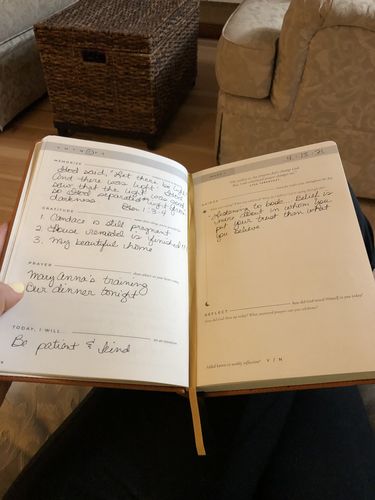 MEMORIZE
God said, "Let there be light"
and there was light. God
saw that the light was good
so God separated light from
darkness Gen. 1:3-4
GRATITUDE
1. Candace is still pregnant
2. House remodel is finished!!
3. My beautiful home
PRAYER
Mary Anna's training
Our dinner tonight
TODAY, I WILL
Be patient & kind
4-13-21
Listening to book. Belief is
more about in whom you
put your trust than what
you believe
REFLECT how did God reveal Himself to you today?
Y / N